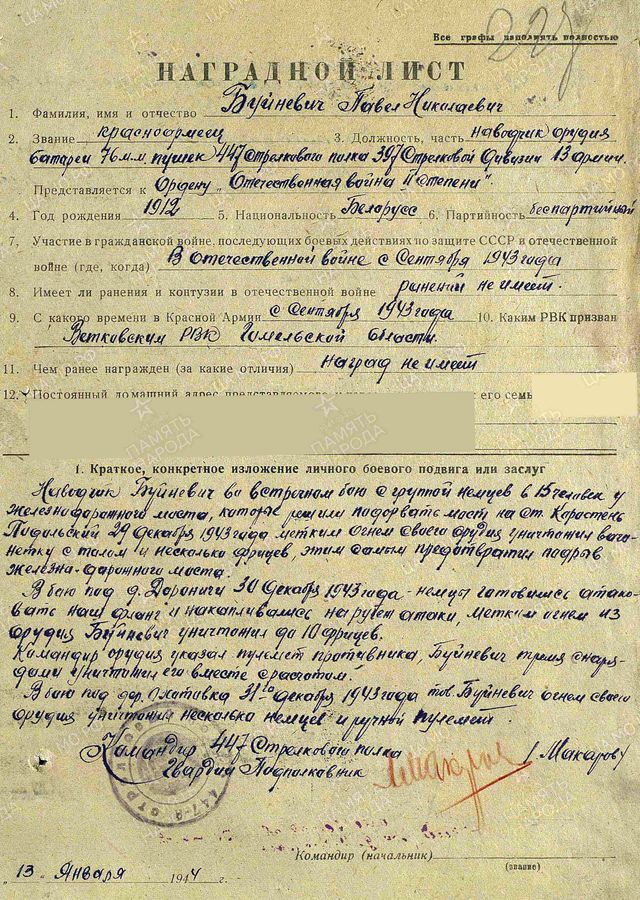 Все графы заполнять полностью
227
НАГРАДНОЙ ЛИСТ
1. Фамилия, имя и отчество Буйневич Павел Николаевич
2. Звание красноармеец 3. Должность, часть наводчик орудия
батареи 76 м.м. пушек 447 Стрелкового полка 397 Стрелковой Дивизии 13 армии.
Представляется к Ордену „Отечественная война II степени".
4. Год рождения 1912 5. Национальность Беларусс 6. Партийность беспартийный
7. Участие в гражданской войне, последующих боевых действиях по защите СССР и отечественной
войне (где, когда) В Отечественной войне с Сентября 1943 года
8. Имеет ли ранения и контузии в отечественной войне ранений не имеет.
9. С какого времени в Красной Армии с Сентября 1943 года 10. Каким РВК призван
Ветковским РВК Гомельской области.
11. Чем ранее награжден (за какие отличия) наград не имеет
12. Постоянный домашний адрес представляемого к его семь
I. Краткое, конкретное изложение личного боевого подвига или заслуг
Наводчик Буйневич во встречном бою с группой немцев в 15 человек у
железнодорожного моста, которые решили подорвать мост на ст. Коростень
Подольский 29 декабря 1943 года метким огнем своего орудия уничтожил ваго-
нетку с толом и несколько фрицев, этим самым предотвратил подрыв
железна-дарожного моста.
В бою под д. Дороничи 30 декабря 1943 года - немцы готовились атако-
вать наш фланг и накапливались на рубеж атаки, метким огнем из
орудия Буйневич уничтожил до 10 фрицев.
Командир орудия указал пулемет противника, Буйневич тремя снаря-
дами уничтожил его вместе с расчетом.
В бою под дер. Охотовка 31го декабря 1943 года тов. Буйневич огнем своего
орудия уничтожил несколько немцев и ручной пулемет.
Командир 447 Стрелкового полка
Гвардии Подполковник / Макаров /
Командир (начальник)
(звание)
„13" Января 1944 г.